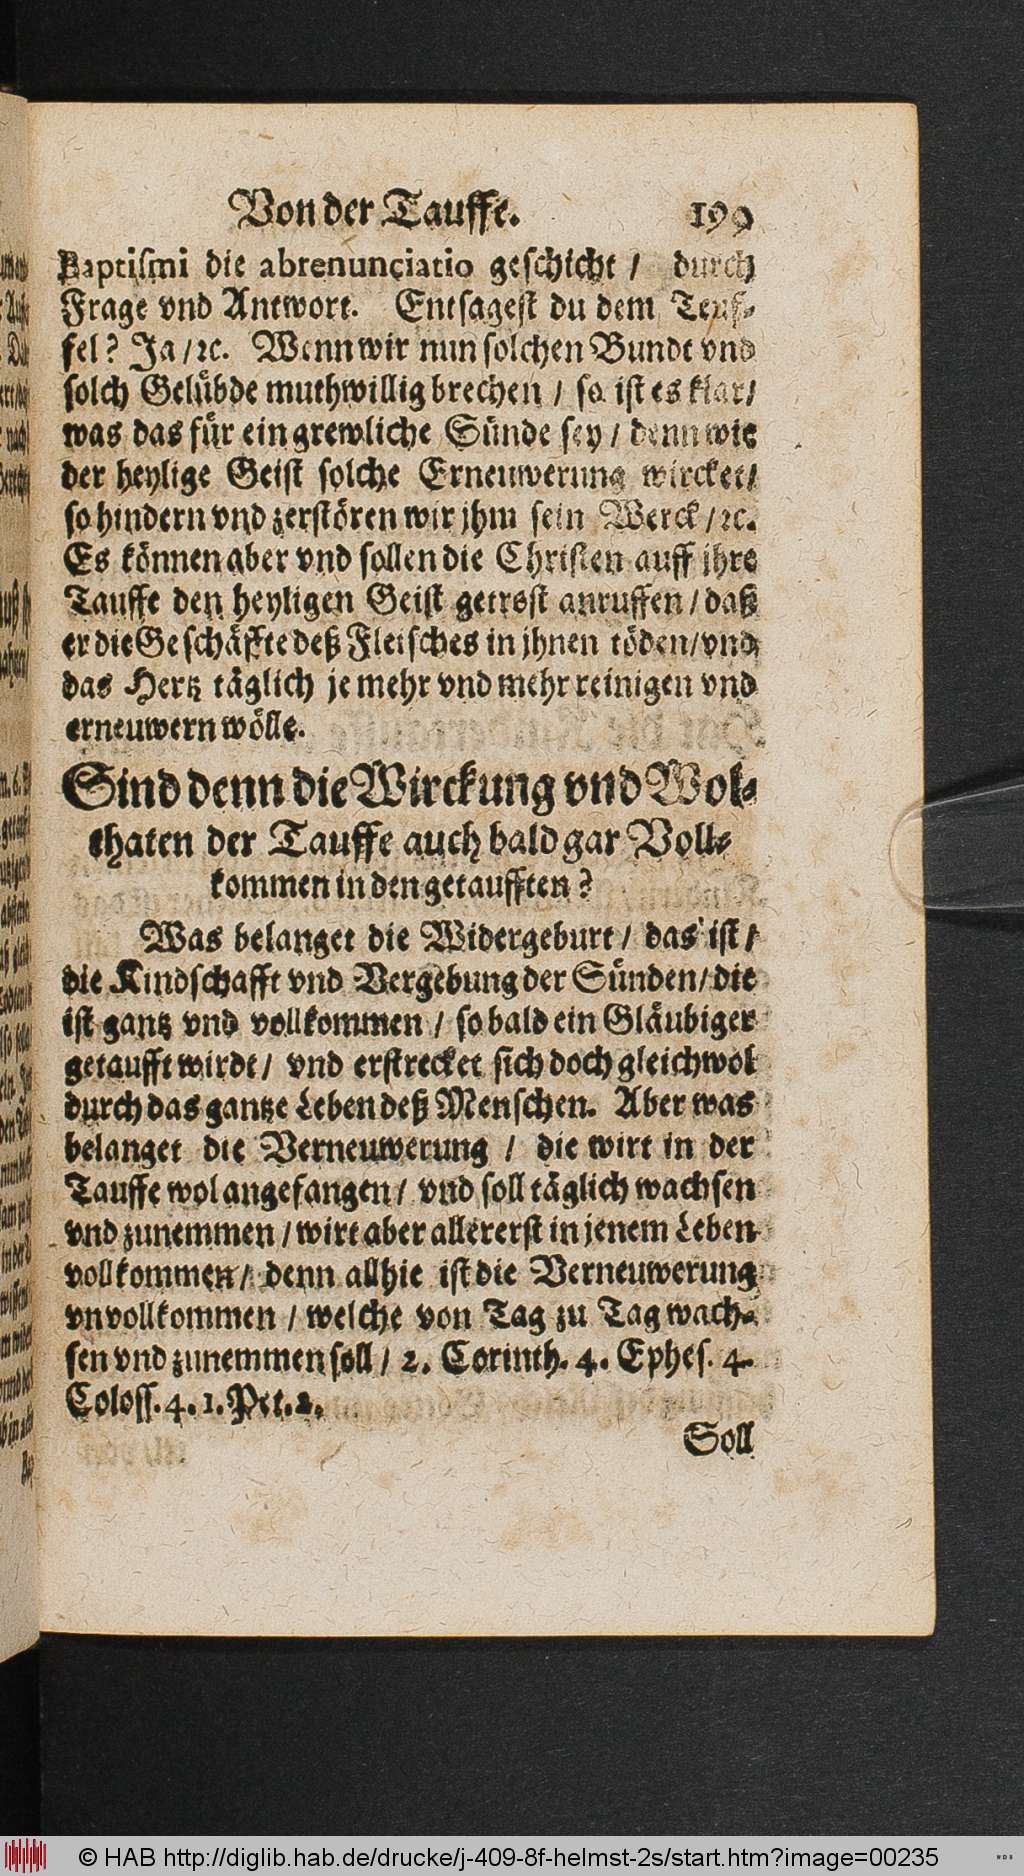 Von der Tauffe. 199
Baptismi die abrenunciatio geschicht / durch
Frage vnd Antwort. Entsagest du dem Teuf-
fel? Ja / ꝛc. Wenn wir nun solchen Bundt vnd
solch Gelübde muthwillig brechen / so ist es klar /
was das für ein grewliche Sünde sey / denn wie
der heylige Geist solche Erneuwerung wircket /
so hindern vnd zerstören wir jhm sein Werck / ꝛc.
Es können aber vnd sollen die Christen auff jhre
Tauffe den heyligen Geist getrost anruffen / daß
er die Geschäffte deß Fleisches in jhnen töden / vnd
das Hertz täglich je mehr vnd mehr reinigen vnd
erneuwern wölle.
Sind denn die Wirckung vnd Wol-
thaten der Tauffe auch bald gar Voll-
kommen in den getaufften?
Was belanget die Widergeburt / das ist /
die Kindschafft vnd Vergebung der Sünden / die
ist gantz vnd vollkommen / so bald ein Gläubiger
getaufft wirdt / vnd erstrecket sich doch gleichwol
durch das gantze Leben deß Menschen. Aber was
belanget die Verneuwerung / die wirt in der
Tauffe wol angefangen / vnd soll täglich wachsen
vnd zunemmen / wirt aber allererst in jenem Leben
vollkommen / denn allhie ist die Verneuwerung
vnvollkommen / welche von Tag zu Tag wach-
sen vnd zunemmen soll / 2. Corinth. 4. Ephes. 4.
Coloss. 4. 1. Pet. 2.
Soll
© HAB http://diglib.hab.de/drucke/j-409-8f-helmst-2s/start.htm?image=00235